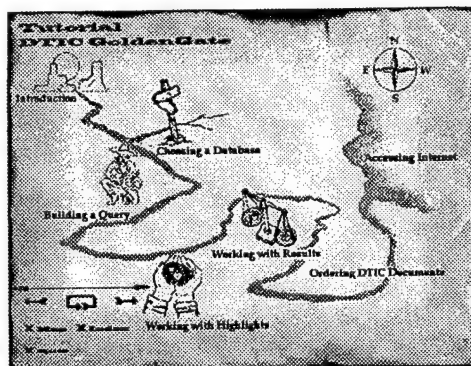 Tutorial
DTIC GoldenGate
N
E W
S
Introduction
Choosing a Database
Accessing Internet
Building a Query
Working with Results
Ordering DTIC Documents
Working with Highlights